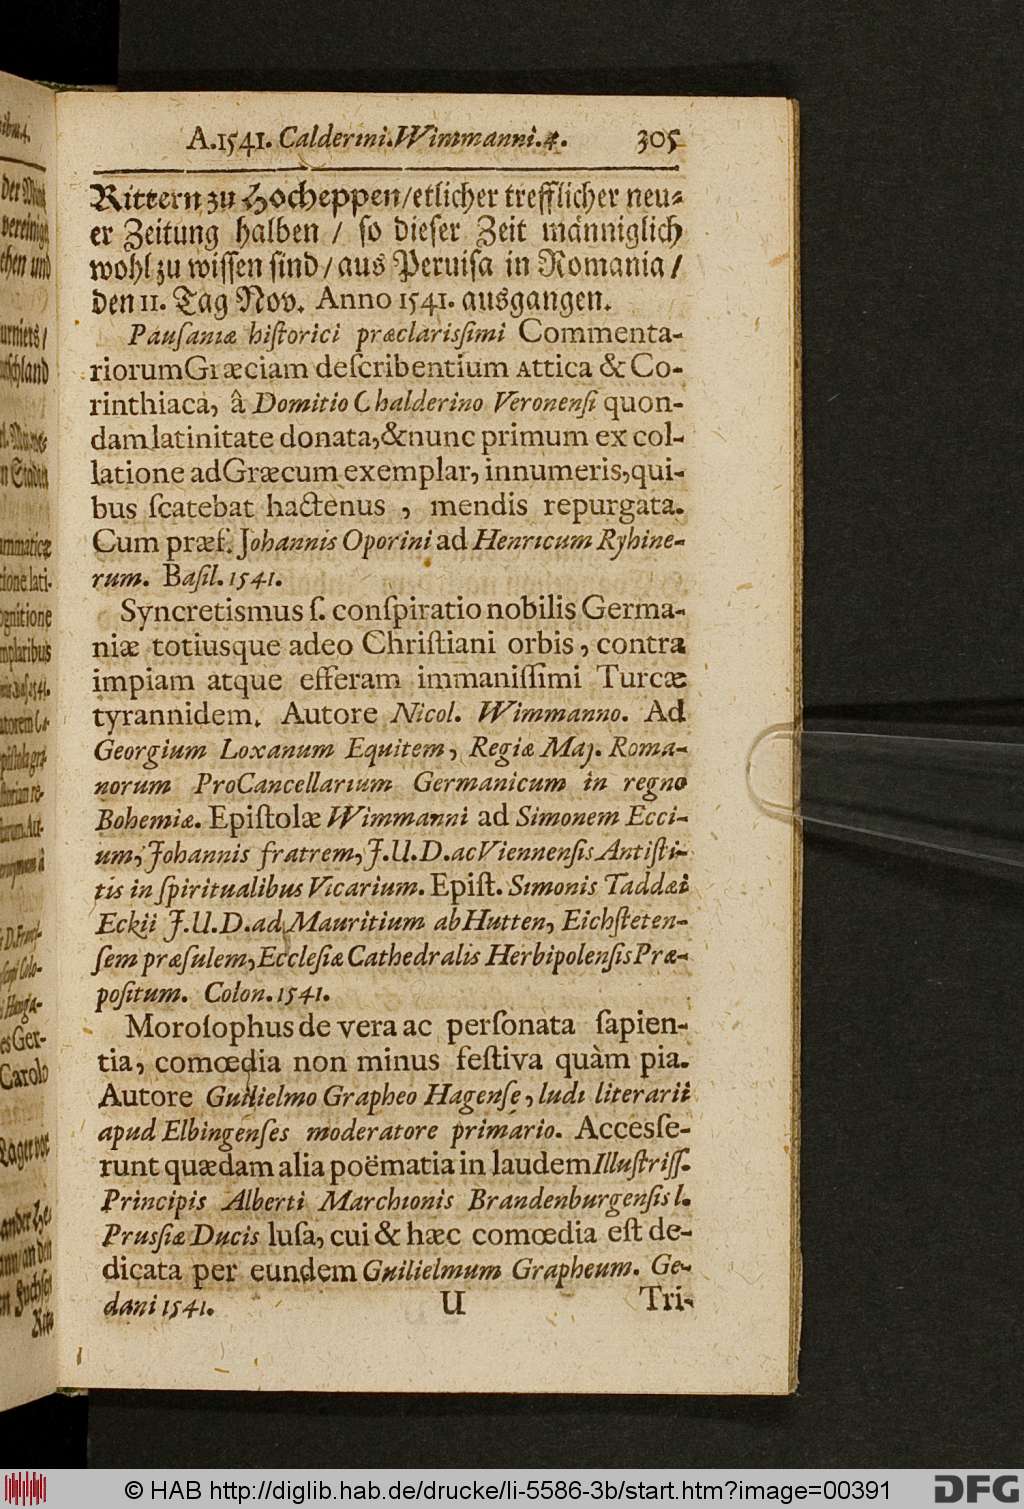 A.1541. Calderini.Wimmanni.4. 305
Rittern zu Hocheppen/etlicher trefflicher neu⸗
er Zeitung halben / so dieser Zeit männiglich
wohl zu wissen sind/aus Peruisa in Romania/
den 11. Tag Nov. Anno 1541. ausgangen.
Pauſaniæ hiſtorici præclariſſimi Commenta-
riorum Græciam deſcribentium Attica & Co-
rinthiaca, â Domitio Chalderino Veronenſi quon-
dam latinitate donata,&nunc primum ex col-
latione ad Græcum exemplar, innumeris,qui-
bus ſcatebat hactenus , mendis repurgata.
Cum præf. Johannis Oporini ad Henricum Ryhine-
rum. Baſil. 1541.
Syncretismus ſ. conſpiratio nobilis Germa-
niæ totiusque adeo Chriſtiani orbis, contra
impiam atque efferam immaniſſimi Turcæ
tyrannidem. Autore Nicol. Wimmanno. Ad
Georgium Loxanum Equitem, Regiæ Maj. Roma-
norum ProCancellarium Germanicum in regno
Bohemiæ. Epiſtolæ Wimmanni ad Simonem Ecci-
um, Johannis fratrem, J.U.D.ac Viennenſis Antiſti-
tis in ſpiritualibus Vicarium. Epiſt. Simonis Taddæi
Eckii J.U.D. ad Mauritium ab Hutten, Eichſteten-
ſem præſulem, Eccleſiæ Cathedralis Herbipolenſis Præ-
poſitum. Colon. 1541.
Moroſophus de vera ac perſonata ſapien-
tia, comœdia non minus feſtiva quàm pia.
Autore Guilielmo Grapheo Hagenſe, ludi literarii
apud Elbingenſes moderatore primario. Acceſſe-
runt quædam alia poëmatia in laudem Illuſtriſſ.
Principis Alberti Marchionis Brandenburgenſis l.
Pruſſiæ Ducis luſa, cui & hæc comœdia eſt de-
dicata per eundem Guilielmum Grapheum. Ge-
dani 1541. U Tri-
© HAB http://diglib.hab.de/drucke/li-5586-3b/start.htm?image=00391
DFG